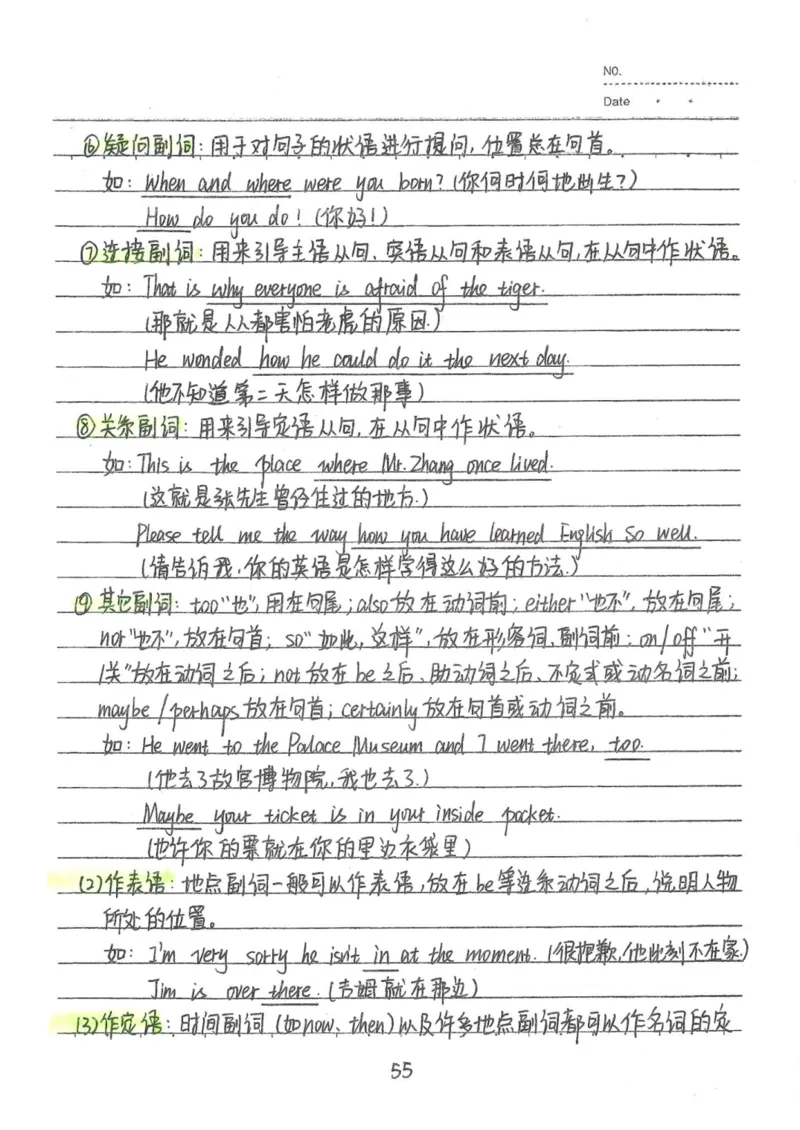 NO.
Date
⑥疑问副词：用于对句子的状语进行提问，位置总在句首。
如：When and where were you born?（你何时何地出生？）
How do you do!（你好！）
⑦连接副词：用来引导主语从句、宾语从句和表语从句，在从句中作状语。
如：That is why everyone is afraid of the tiger.
（那就是人人都害怕老虎的原因.）
He wonded how he could do it the next day.
（他不知道第二天怎样做那事）
⑧关系副词：用来引导定语从句，在从句中作状语。
如：This is the place where Mr. Zhang once lived.
（这就是张先生曾经住过的地方.）
Please tell me the way how you have learned English so well.
（请告诉我，你的英语是怎样学得这么好的方法.）
⑨其它副词：too"也"，用在句尾；also放在动词前；either"也不"，放在句尾；
nor"也不"，放在句首；so"如此，这样"，放在形容词、副词前；on/off"开
/关"放在动词之后；not放在be之后、助动词之后、不定式或动名词之前；
maybe/perhaps放在句首；certainly放在句首或动词之前。
如：He went to the Palace Museum and I went there, too.
（他去了故宫博物院，我也去了.）
Maybe your ticket is in your inside pocket.
（也许你的票就在你的里边衣袋里）
(2)作表语：地点副词一般可以作表语，放在be等连系动词之后，说明人物
所处的位置。
如：I'm very sorry he isn't in at the moment.（很抱歉，他此刻不在家.）
Jim is over there.（吉姆就在那边）
(3)作定语：时间副词（如now、then）以及许多地点副词都可以作名词的定
55